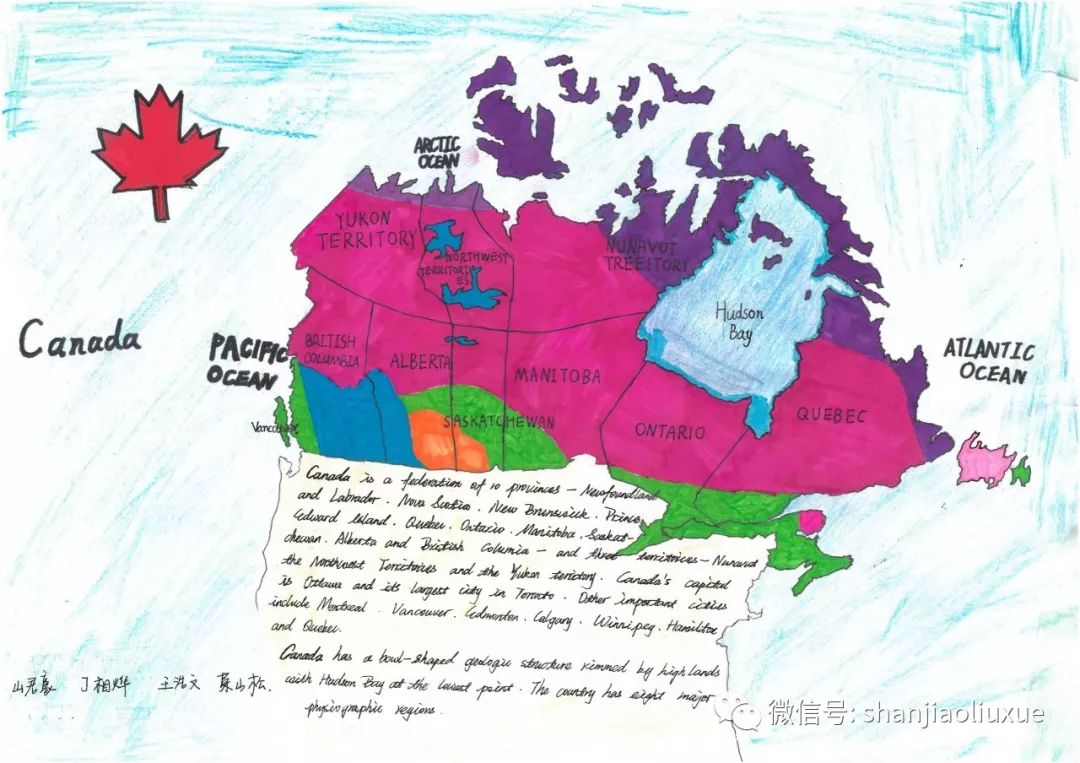 ARCTIC
OCEAN
YUKON
TERRITORY
NORTHWEST
TERRITORI
ES
NUNAVUT
TREEITORY
Hudson
Bay
Canada
PACIFIC
OCEAN
BRITISH
COLUMBIA
ALBERTA
MANITOBA
ATLANTIC
OCEAN
Vancouver
SASKATCHEWAN
ONTARIO
QUEBEC
Canada is a federation of 10 provinces — Newfoundland
and Labrador. Nova Scotia. New Brunswick. Prince
Edward Island. Quebec. Ontario. Manitoba. Saskat-
chewan. Alberta and British Columia — and three territories — Nunavut
the Northwest Territories and the Yukon territory. Canada's capital
is Ottawa and its largest city in Toronto. Other important cities
include Montreal. Vancouver. Edmonton. Calgary. Winnipeg. Hamilton
and Quebec.
Canada has a bowl-shaped geologic structure rimmed by highlands
with Hudson Bay at the lowest point. The country has eight major
physiographic regions.
丁相烨 王浩文
微信号: shanjiaoliuxue